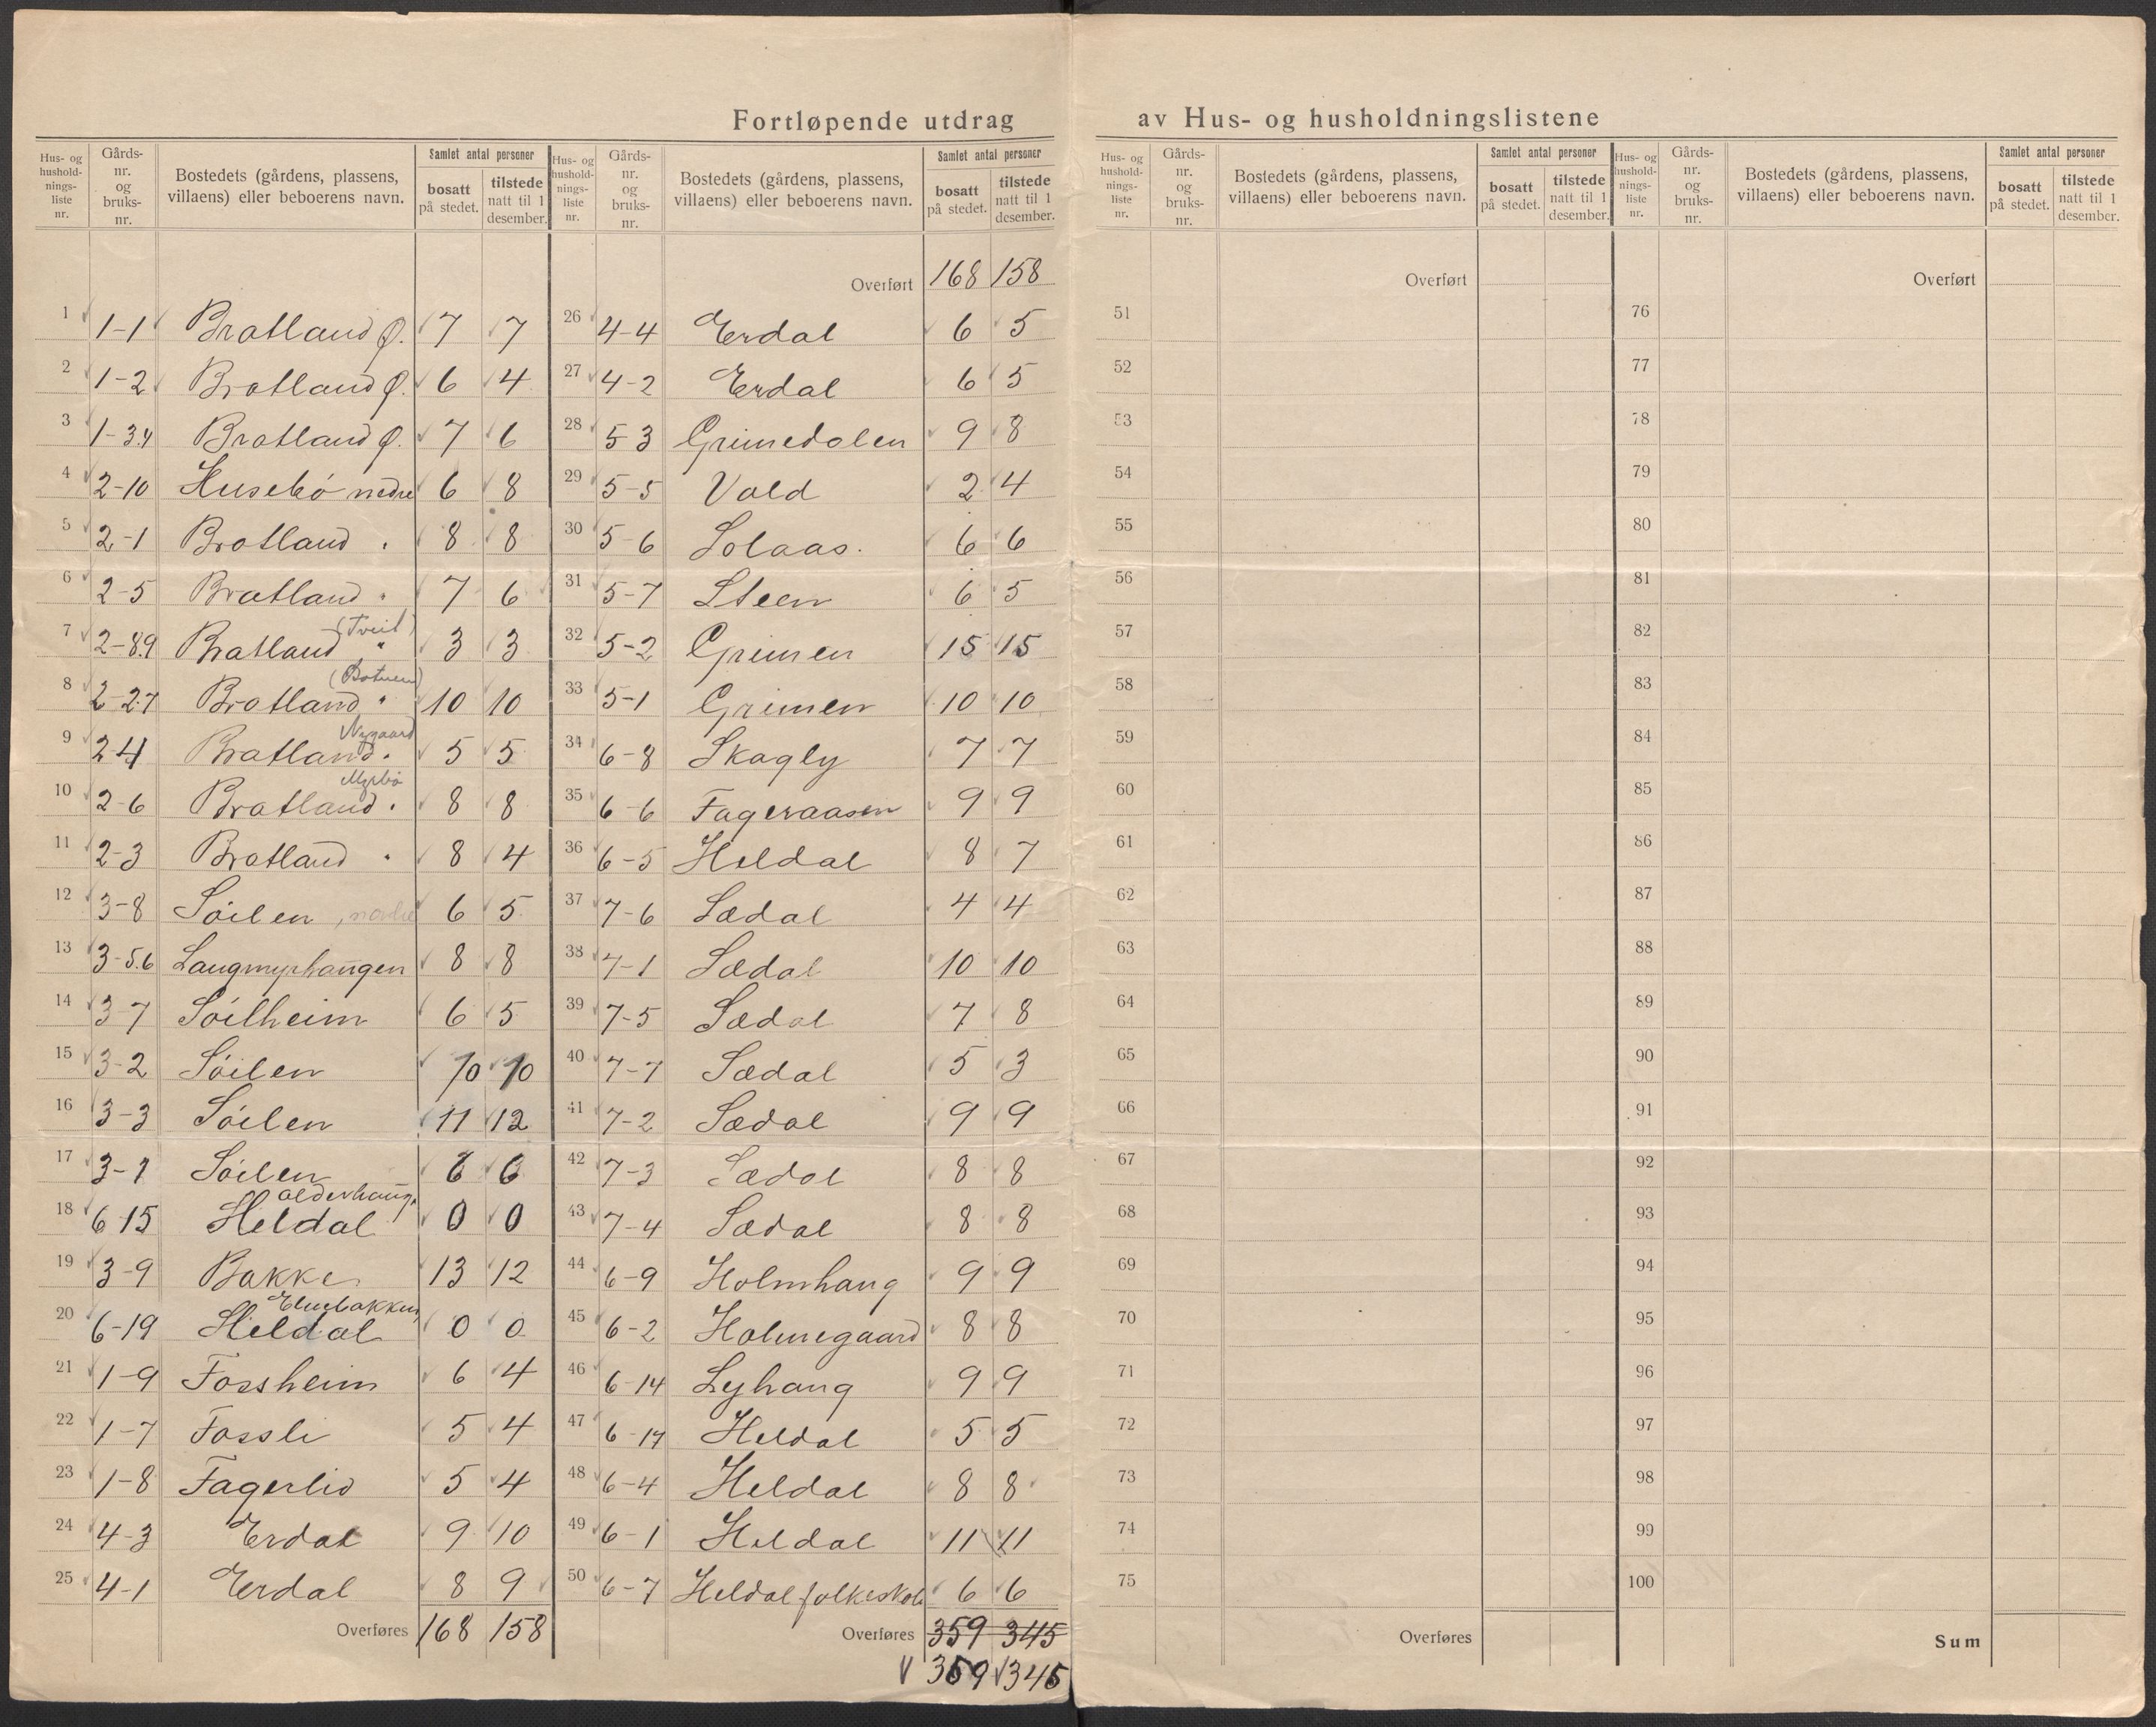 Fortløpende utdrag av Hus- og husholdningslistene
Hus- og husholdnings-liste nr. | Gårds-nr. og bruks-nr. | Bostedets (gårdens, plassens, villaens) eller beboerens navn. | Samlet antal personer bosatt på stedet. | tilstede natt til 1 desember.
1 1-1 Bratland Ø. 7 7
2 1-2 Bratland Ø. 6 4
3 1-3.4 Bratland Ø. 7 6
4 2-10 Husebø nedre 6 8
5 2-1 Bratland " 8 8
6 2-5 Bratland " 7 6
7 2-8.9 Bratland " (Tveit) 3 3
8 2-2.7 Bratland " (Botnen) 10 10
9 2-4 Bratland " Nygaard 5 5
10 2-6 Bratland " Myrbø 8 8
11 2-3 Bratland " 8 4
12 3-8 Søilen, nordre 6 5
13 3-5.6 Langmyrhaugen 8 8
14 3-7 Søilheim 6 5
15 3-2 Søilen 10 10
16 3-3 Søilen 11 12
17 3-1 Søilen 6 6
18 6-15 Heldal Olderhaug. 0 0
19 3-9 Bakke 13 12
20 6-19 Heldal 0 0
21 1-9 Forsheim 6 4
22 1-7 Fossli 5 4
23 1-8 Fagerlid 5 4
24 4-3 Erdal 9 10
25 4-1 Erdal 8 9
Overføres 168 158
Hus- og husholdnings-liste nr. | Gårds-nr. og bruks-nr. | Bostedets (gårdens, plassens, villaens) eller beboerens navn. | Samlet antal personer bosatt på stedet. | tilstede natt til 1 desember.
Overført 168 158
26 4-4 Erdal 6 5
27 4-2 Erdal 6 5
28 5-3 Grimedalen 9 8
29 5-5 Vold 2 4
30 5-6 Solaas. 6 6
31 5-7 Steen 6 5
32 5-2 Grimen 15 15
33 5-1 Grimen 10 10
34 6-8 Skagly 7 7
35 6-6 Fageraasen 9 9
36 6-5 Heldal 8 7
37 7-6 Sædal 4 4
38 7-1 Sædal 10 10
39 7-5 Sædal 7 8
40 7-7 Sædal 5 3
41 7-2 Sædal 9 9
42 7-3 Sædal 8 8
43 7-4 Sædal 8 8
44 6-9 Holmhaug 9 9
45 6-2 Holmegaard 8 8
46 6-14 Lyhaug 9 9
47 6-17 Heldal 5 5
48 6-4 Heldal 8 8
49 6-1 Heldal 11 11
50 6-7 Heldal folkeskole 6 6
Overføres 359 345
359 345
Hus- og husholdnings-liste nr. | Gårds-nr. og bruks-nr. | Bostedets (gårdens, plassens, villaens) eller beboerens navn. | Samlet antal personer bosatt på stedet. | tilstede natt til 1 desember.
Overført
51
52
53
54
55
56
57
58
59
60
61
62
63
64
65
66
67
68
69
70
71
72
73
74
75
Overføres
Hus- og husholdnings-liste nr. | Gårds-nr. og bruks-nr. | Bostedets (gårdens, plassens, villaens) eller beboerens navn. | Samlet antal personer bosatt på stedet. | tilstede natt til 1 desember.
Overført
76
77
78
79
80
81
82
83
84
85
86
87
88
89
90
91
92
93
94
95
96
97
98
99
100
Sum